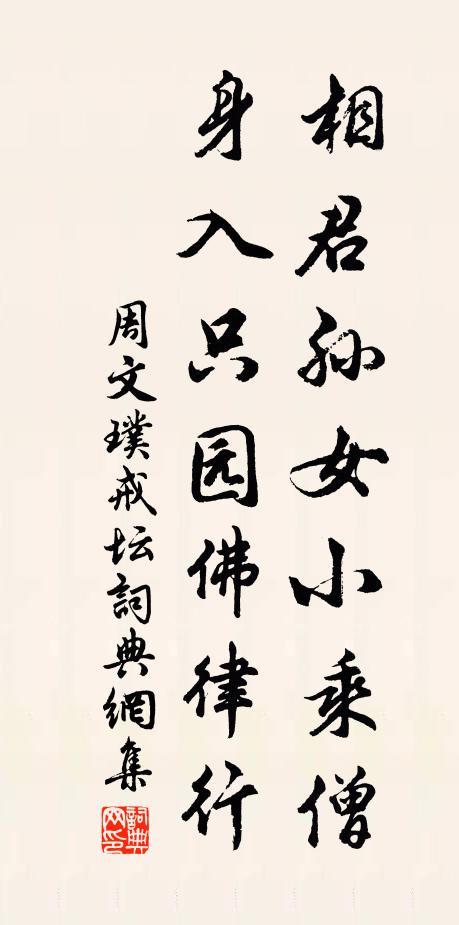 相君孙女小乘僧
身入只园佛律行
周文璞戒坛詞典網集
詞典网印